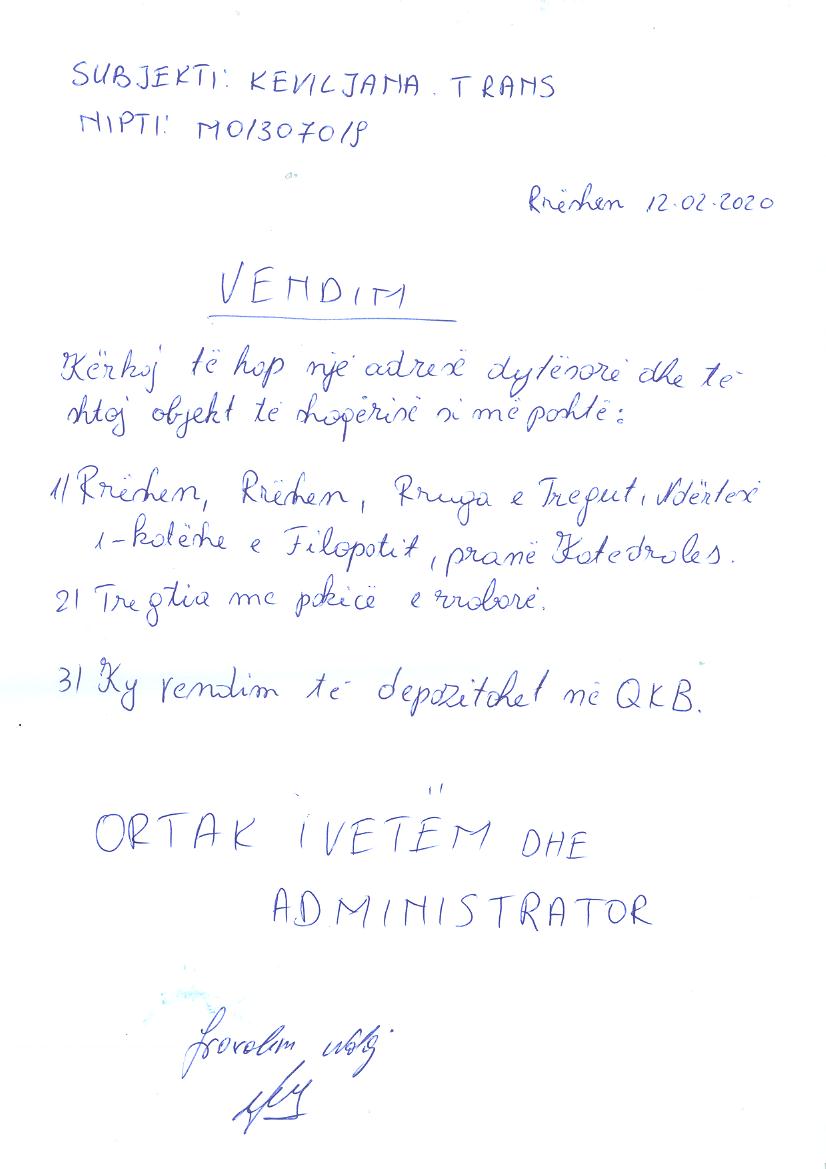 SUBJEKTI: KEVILJANA. TRANS
NIPTI: M01307019
Rrëshen 12.02.2020
VENDIM
Kërkoj të hap një adresë dytësorë dhe të
shtoj objekt të shoqërisë si më poshtë:
1/ Rrëshen, Rrëshen, Rruga e Tregut, Ndërtesë
1-katëshe e Filopatit, pranë Katedrales.
2/ Tregtia me pakicë e rrobave.
3/ Ky vendim të depozitohet në QKB.
ORTAK I VETËM DHE
ADMINISTRATOR